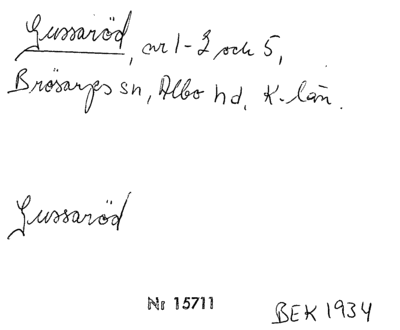 Gussaröd, nr 1-2 och 5,
Brösarps sn, Albo hd, K-län.
Gussaröd
Nr 15711
BEK 1934